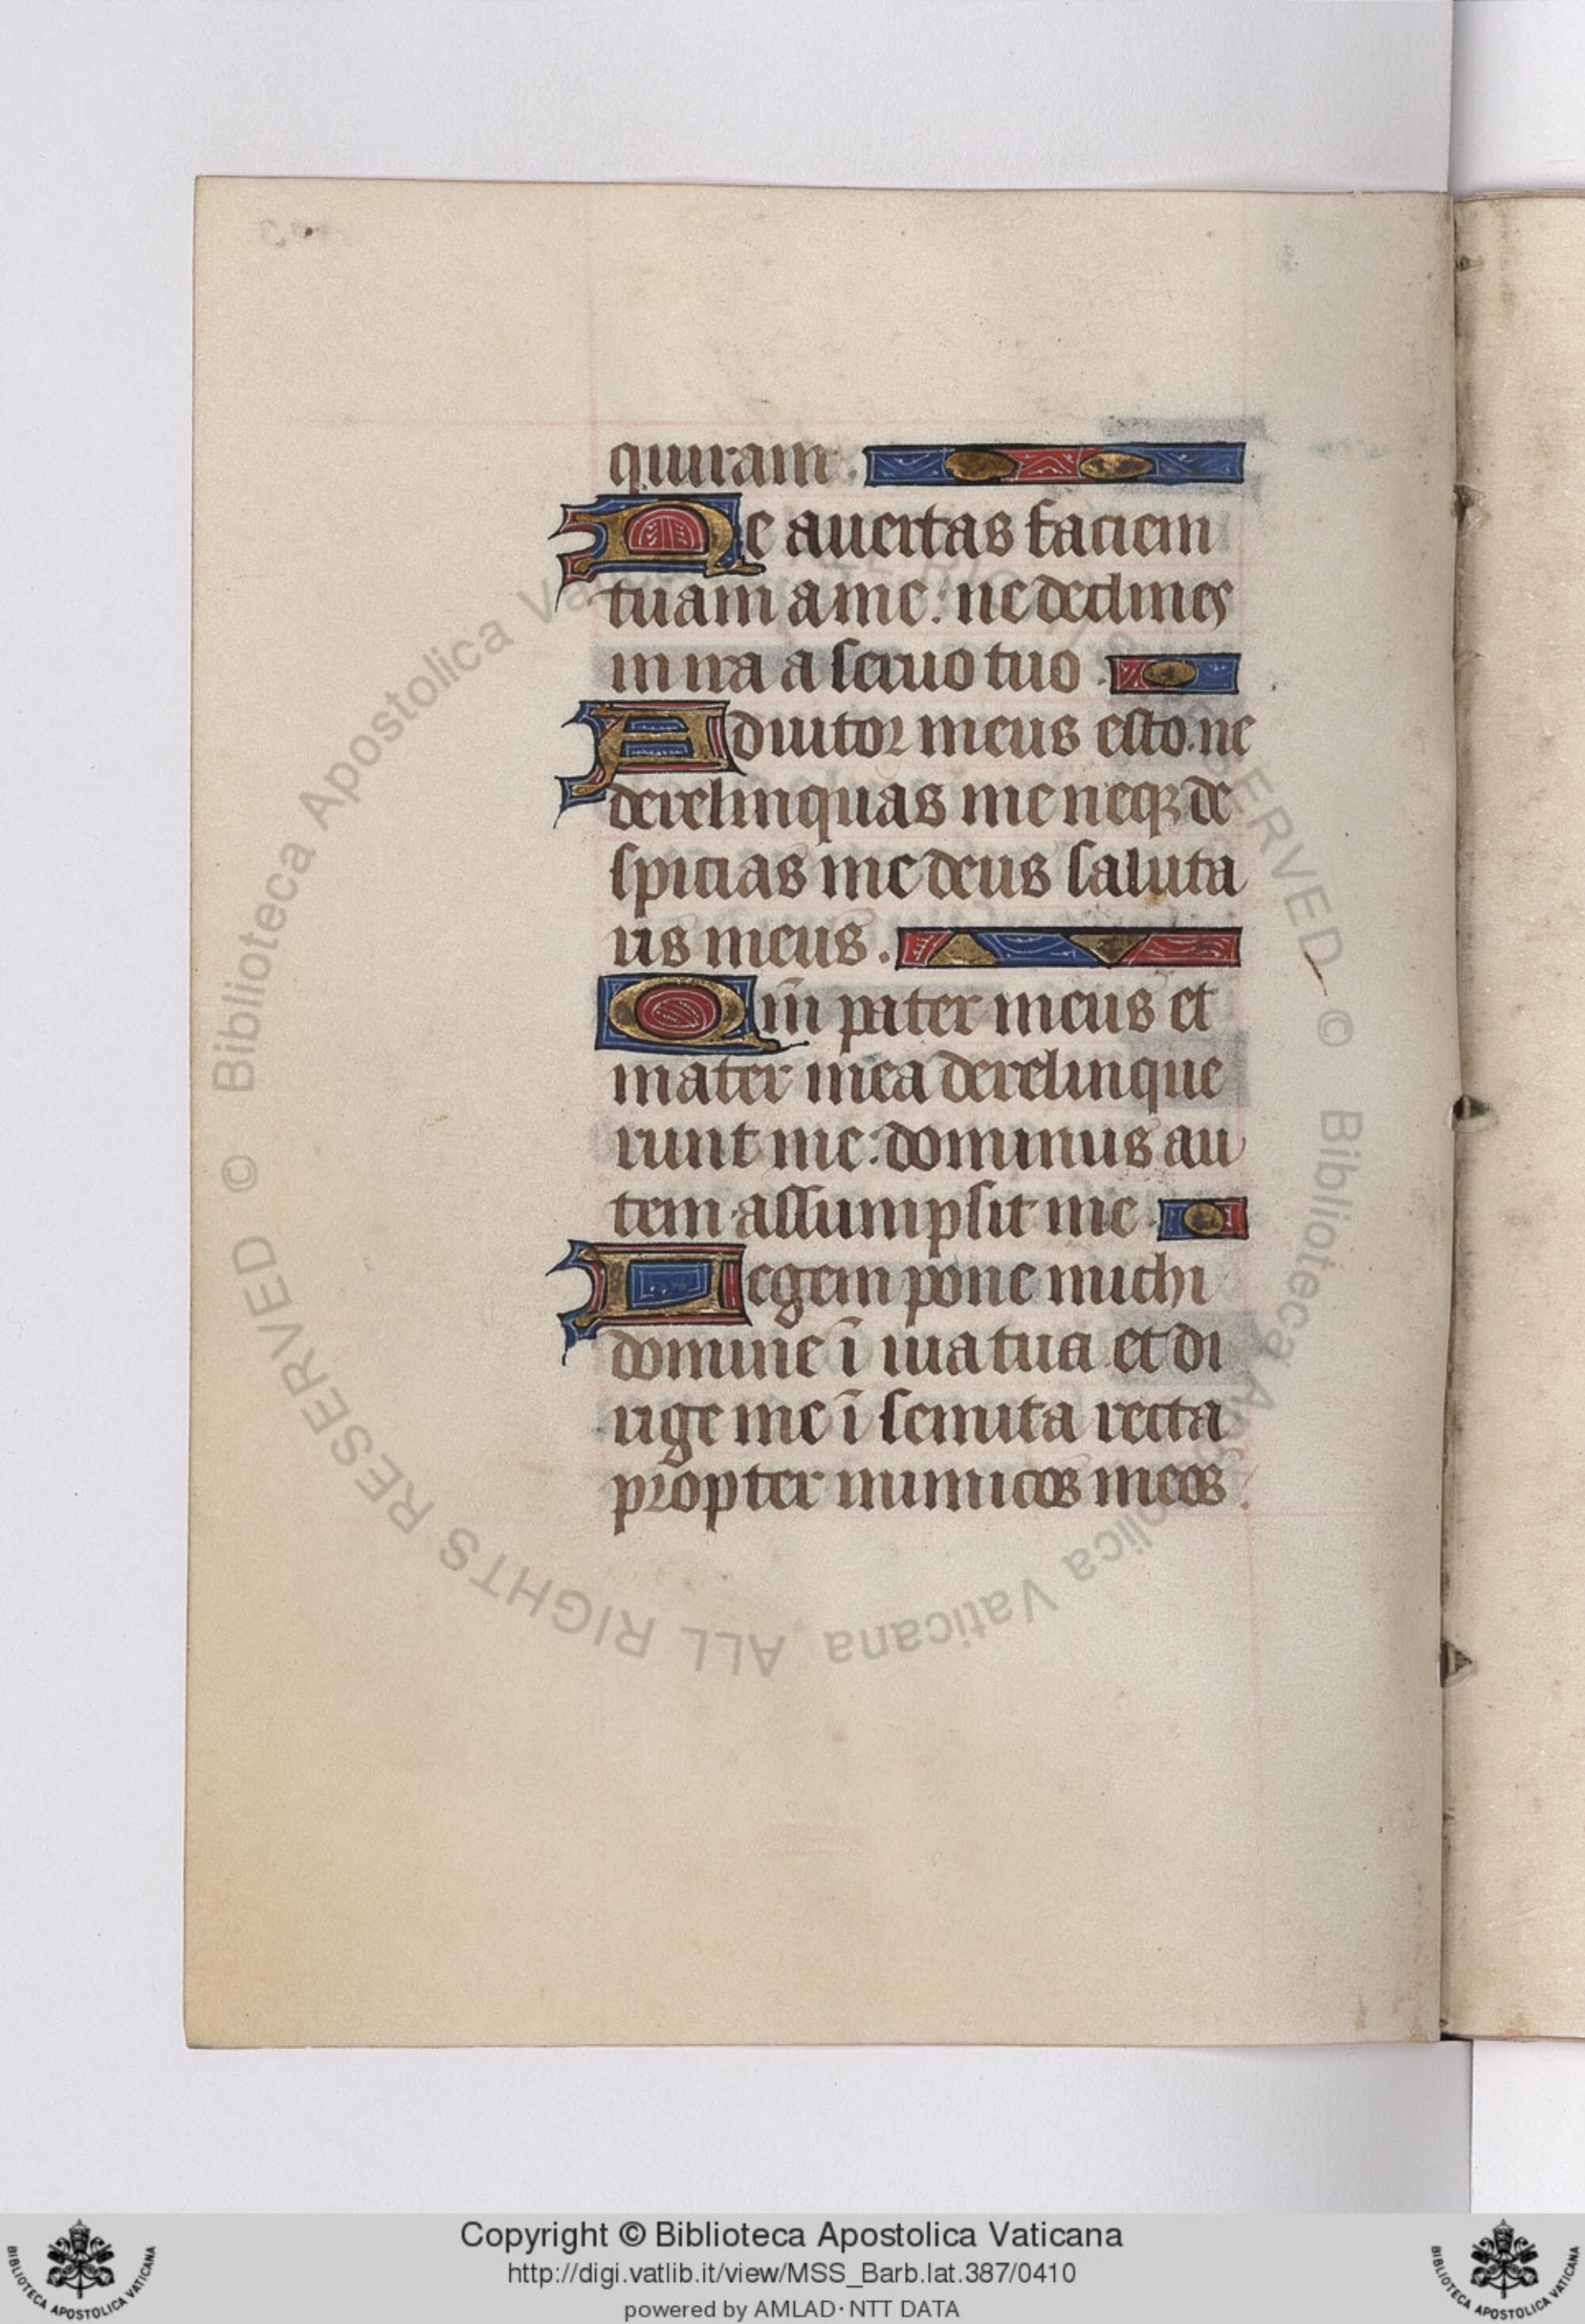 quiram.
Ne auertas faciem
tuam a me: ne declines
in ira a seruo tuo.
Adiutor meus esto. ne
derelinquas me neqꝫ de
spicias me deus saluta
ris meus.
Qm̄ pater meus et
mater mea derelinque
runt me: dominus au
tem assumpsit me.
Legem pone michi
domine ī uia tua et di
rige me ī semita recta
propter inimicos meos.
© Biblioteca Apostolica Vaticana ALL RIGHTS RESERVED © Biblioteca Apostolica Vaticana ALL RIGHTS RESERVED
Copyright © Biblioteca Apostolica Vaticana
http://digi.vatlib.it/view/MSS_Barb.lat.387/0410
powered by AMLAD · NTT DATA
BIBLIOTECA APOSTOLICA VATICANA
BIBLIOTECA APOSTOLICA VATICANA